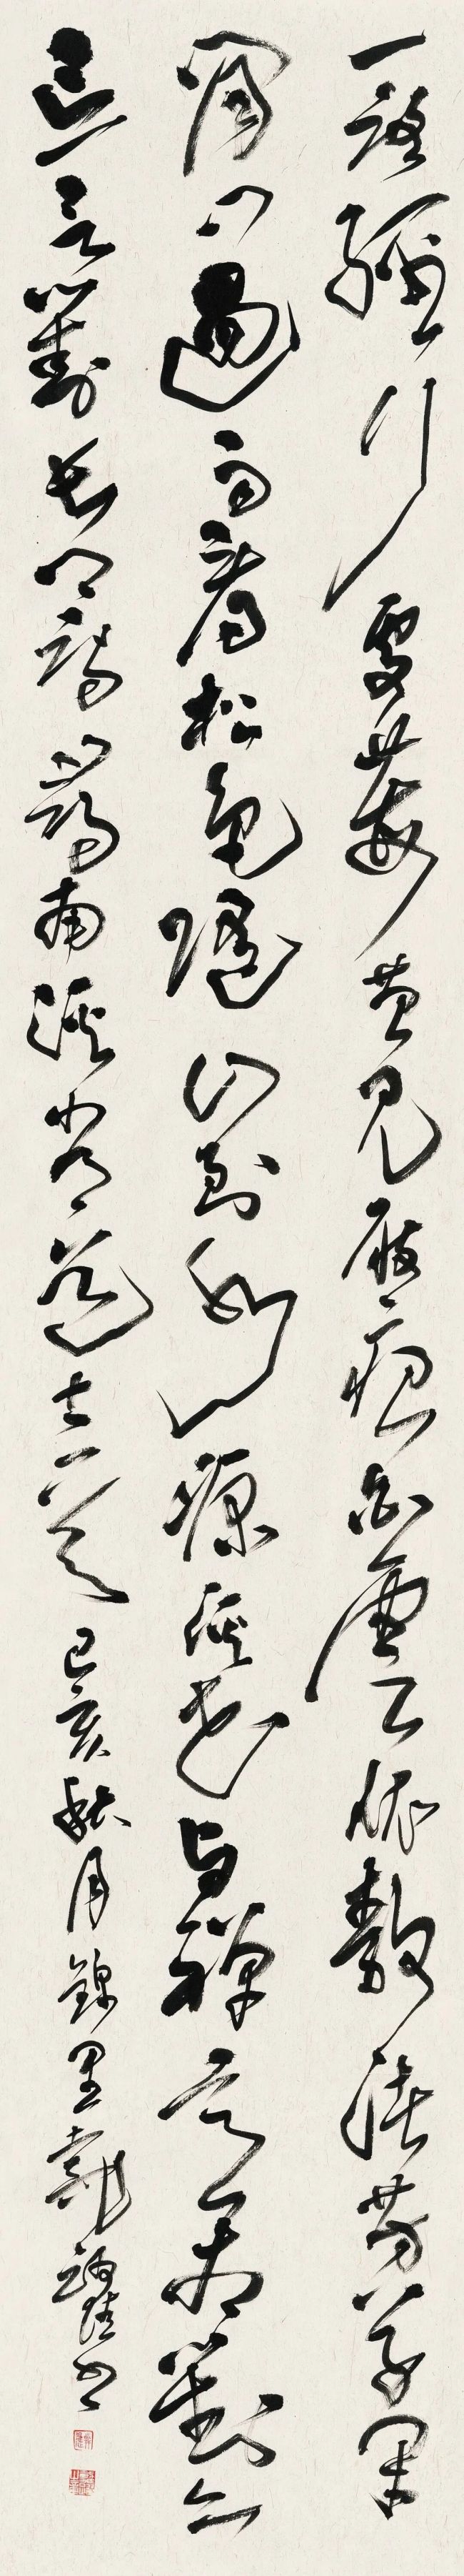 一路經行處莓苔見屐痕白雲依靜渚芳草閉
閒門過雨看松色隨山到水源溪花與禪意相對亦
忘言劉長卿詩尋南溪常道士一首己亥秋月錦里書